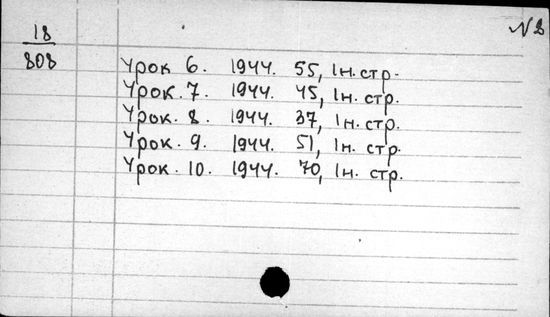 N 2
18
808
Урок 6. 1944. 55, 1н. стр.
Урок. 7. 1944. 45, 1н. стр.
Урок. 8. 1944. 37, 1н. стр.
Урок. 9. 1944. 51, 1н. стр.
Урок. 10. 1944. 70, 1н. стр.